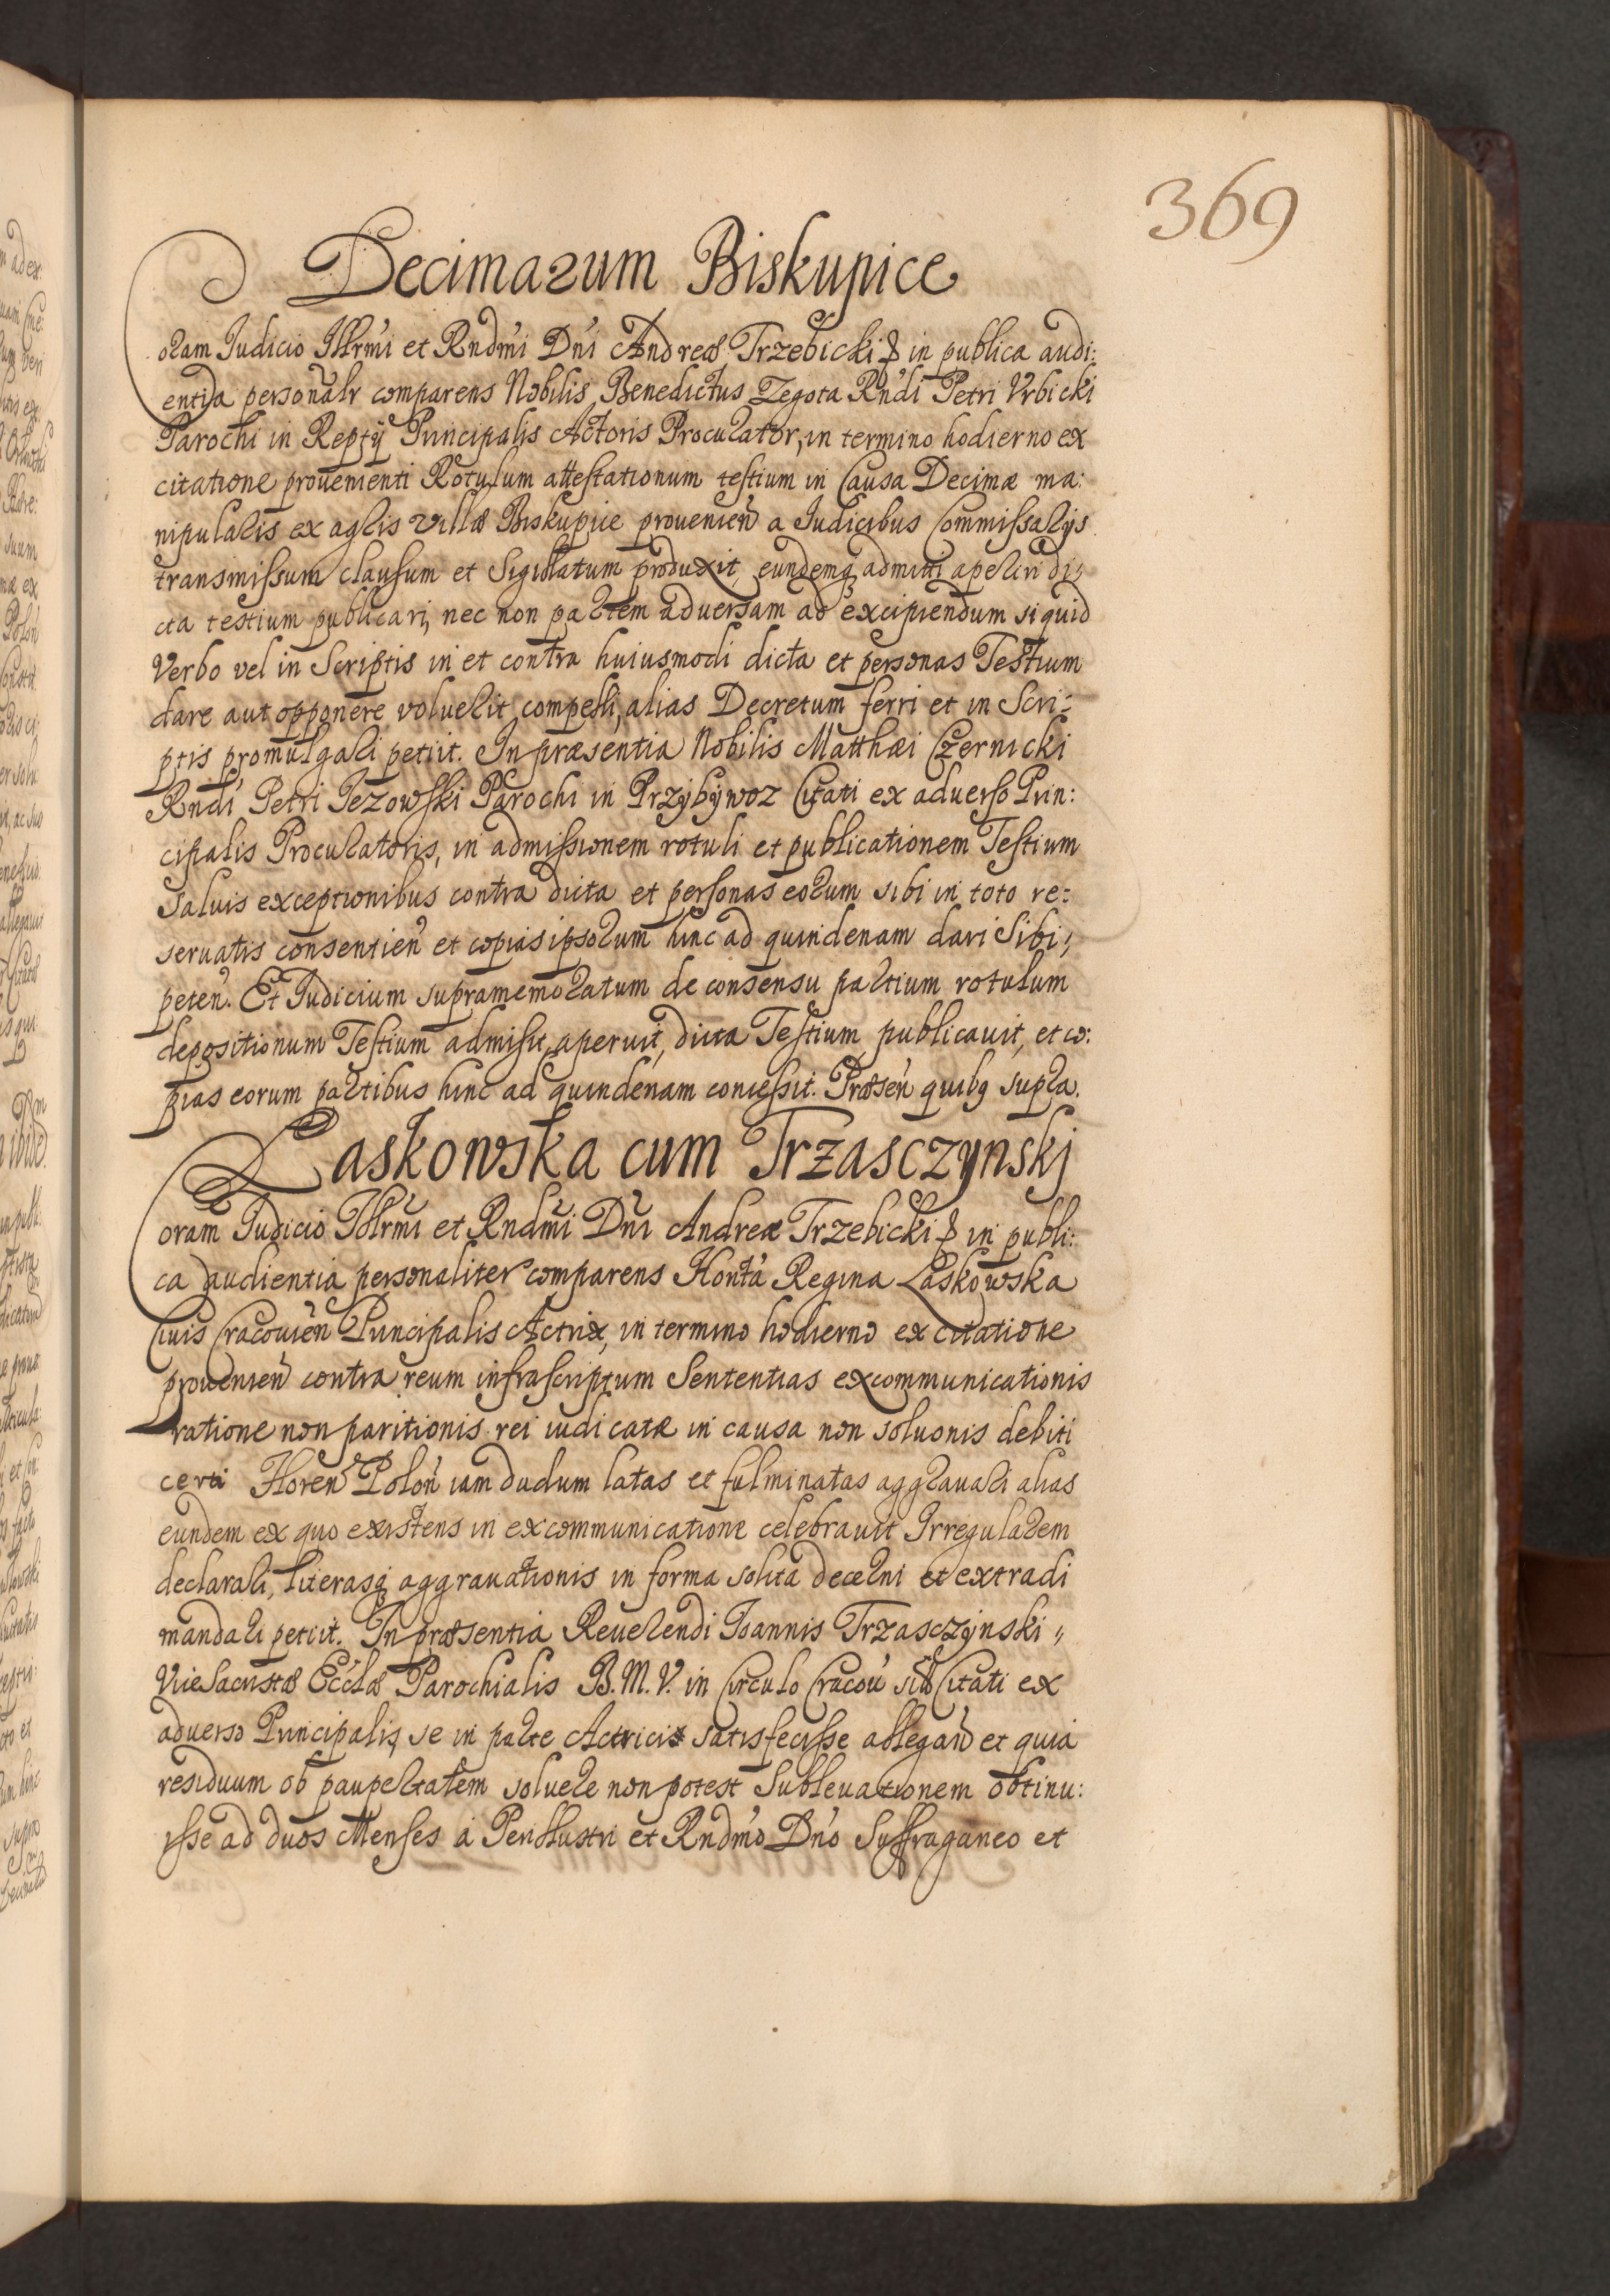 369
Decimarum Biskupice
Coram Judicio Illrmi et Rndmi Dni Andreæ Trzebicki & in publica audi:
entia personalr comparens Nobilis Benedictus Zegota Rndi Petri Vrbicki
Parochi in Repty Principalis Actoris Procurator, in termino hodierno ex
citatione prouenienti Rotulum attestationum testium in Causa Decimæ ma:
nipularis ex agris villæ Biskupice prouenien a Iudicibus Commissarijs
transmissum clausum et Sigillatum produxit, eundemq admitti aperiri di:
cta testium publicari, nec non partem aduersam ad excipiendum si quid
Verbo vel in Scriptis in et contra huiusmodi dicta et personas Testium
dare aut opponere voluerit compelli, alias Decretum ferri et in Scri:
ptis promulgari petiit. In præsentia Nobilis Matthæi Czernicki
Rndi Petri Jezowski Parochi in Przybywoz Citati ex aduerso Prin:
cipalis Procuratoris, in admissionem rotuli et publicationem Testium
saluis exceptionibus contra dicta et personas eorum sibi in toto re:
seruatis consentien et copias ipsorum hinc ad quindenam dari Sibi
peten. Et Iudicium supramemoratum de consensu partium rotulum
depositionum Testium admisit, aperuit, dicta Testium publicauit, et co:
pias eorum partibus hinc ad quindenam concessit. Præsen quibq supra.
Laskowska cum Trzasczynski
Coram Judicio Illrmi et Rndmi Dni Andreæ Trzebicki & in publi:
ca audientia personaliter comparens Honta Regina Laskowska
Ciuis Cracouien Principalis Actrix, in termino hodierno ex citatione
prouenien contra reum infrascriptum Sententias excommunicationis
ratione non paritionis rei iudicatæ in causa non soluonis debiti
certi Floren Polon iam dudum latas et fulminatas aggrauari alias
eundem ex quo existens in excommunicatione celebrauit Irregularem
declarari, literasq aggrauationis in forma solita decerni et extradi
mandari petiit. In præsentia Reuerendi Joannis Trzasczynski
Vicesacristæ Ecclæ Parochialis B. M. V. in Circulo Cracou sitæ Citati ex
aduerso Principalis, se in parte Actricis satisfecisse allegan et quia
residuum ob paupertatem soluere non potest Subleuationem obtinu:
isse ad duos Menses a Perillustri et Rndmo Dno Suffraganeo et